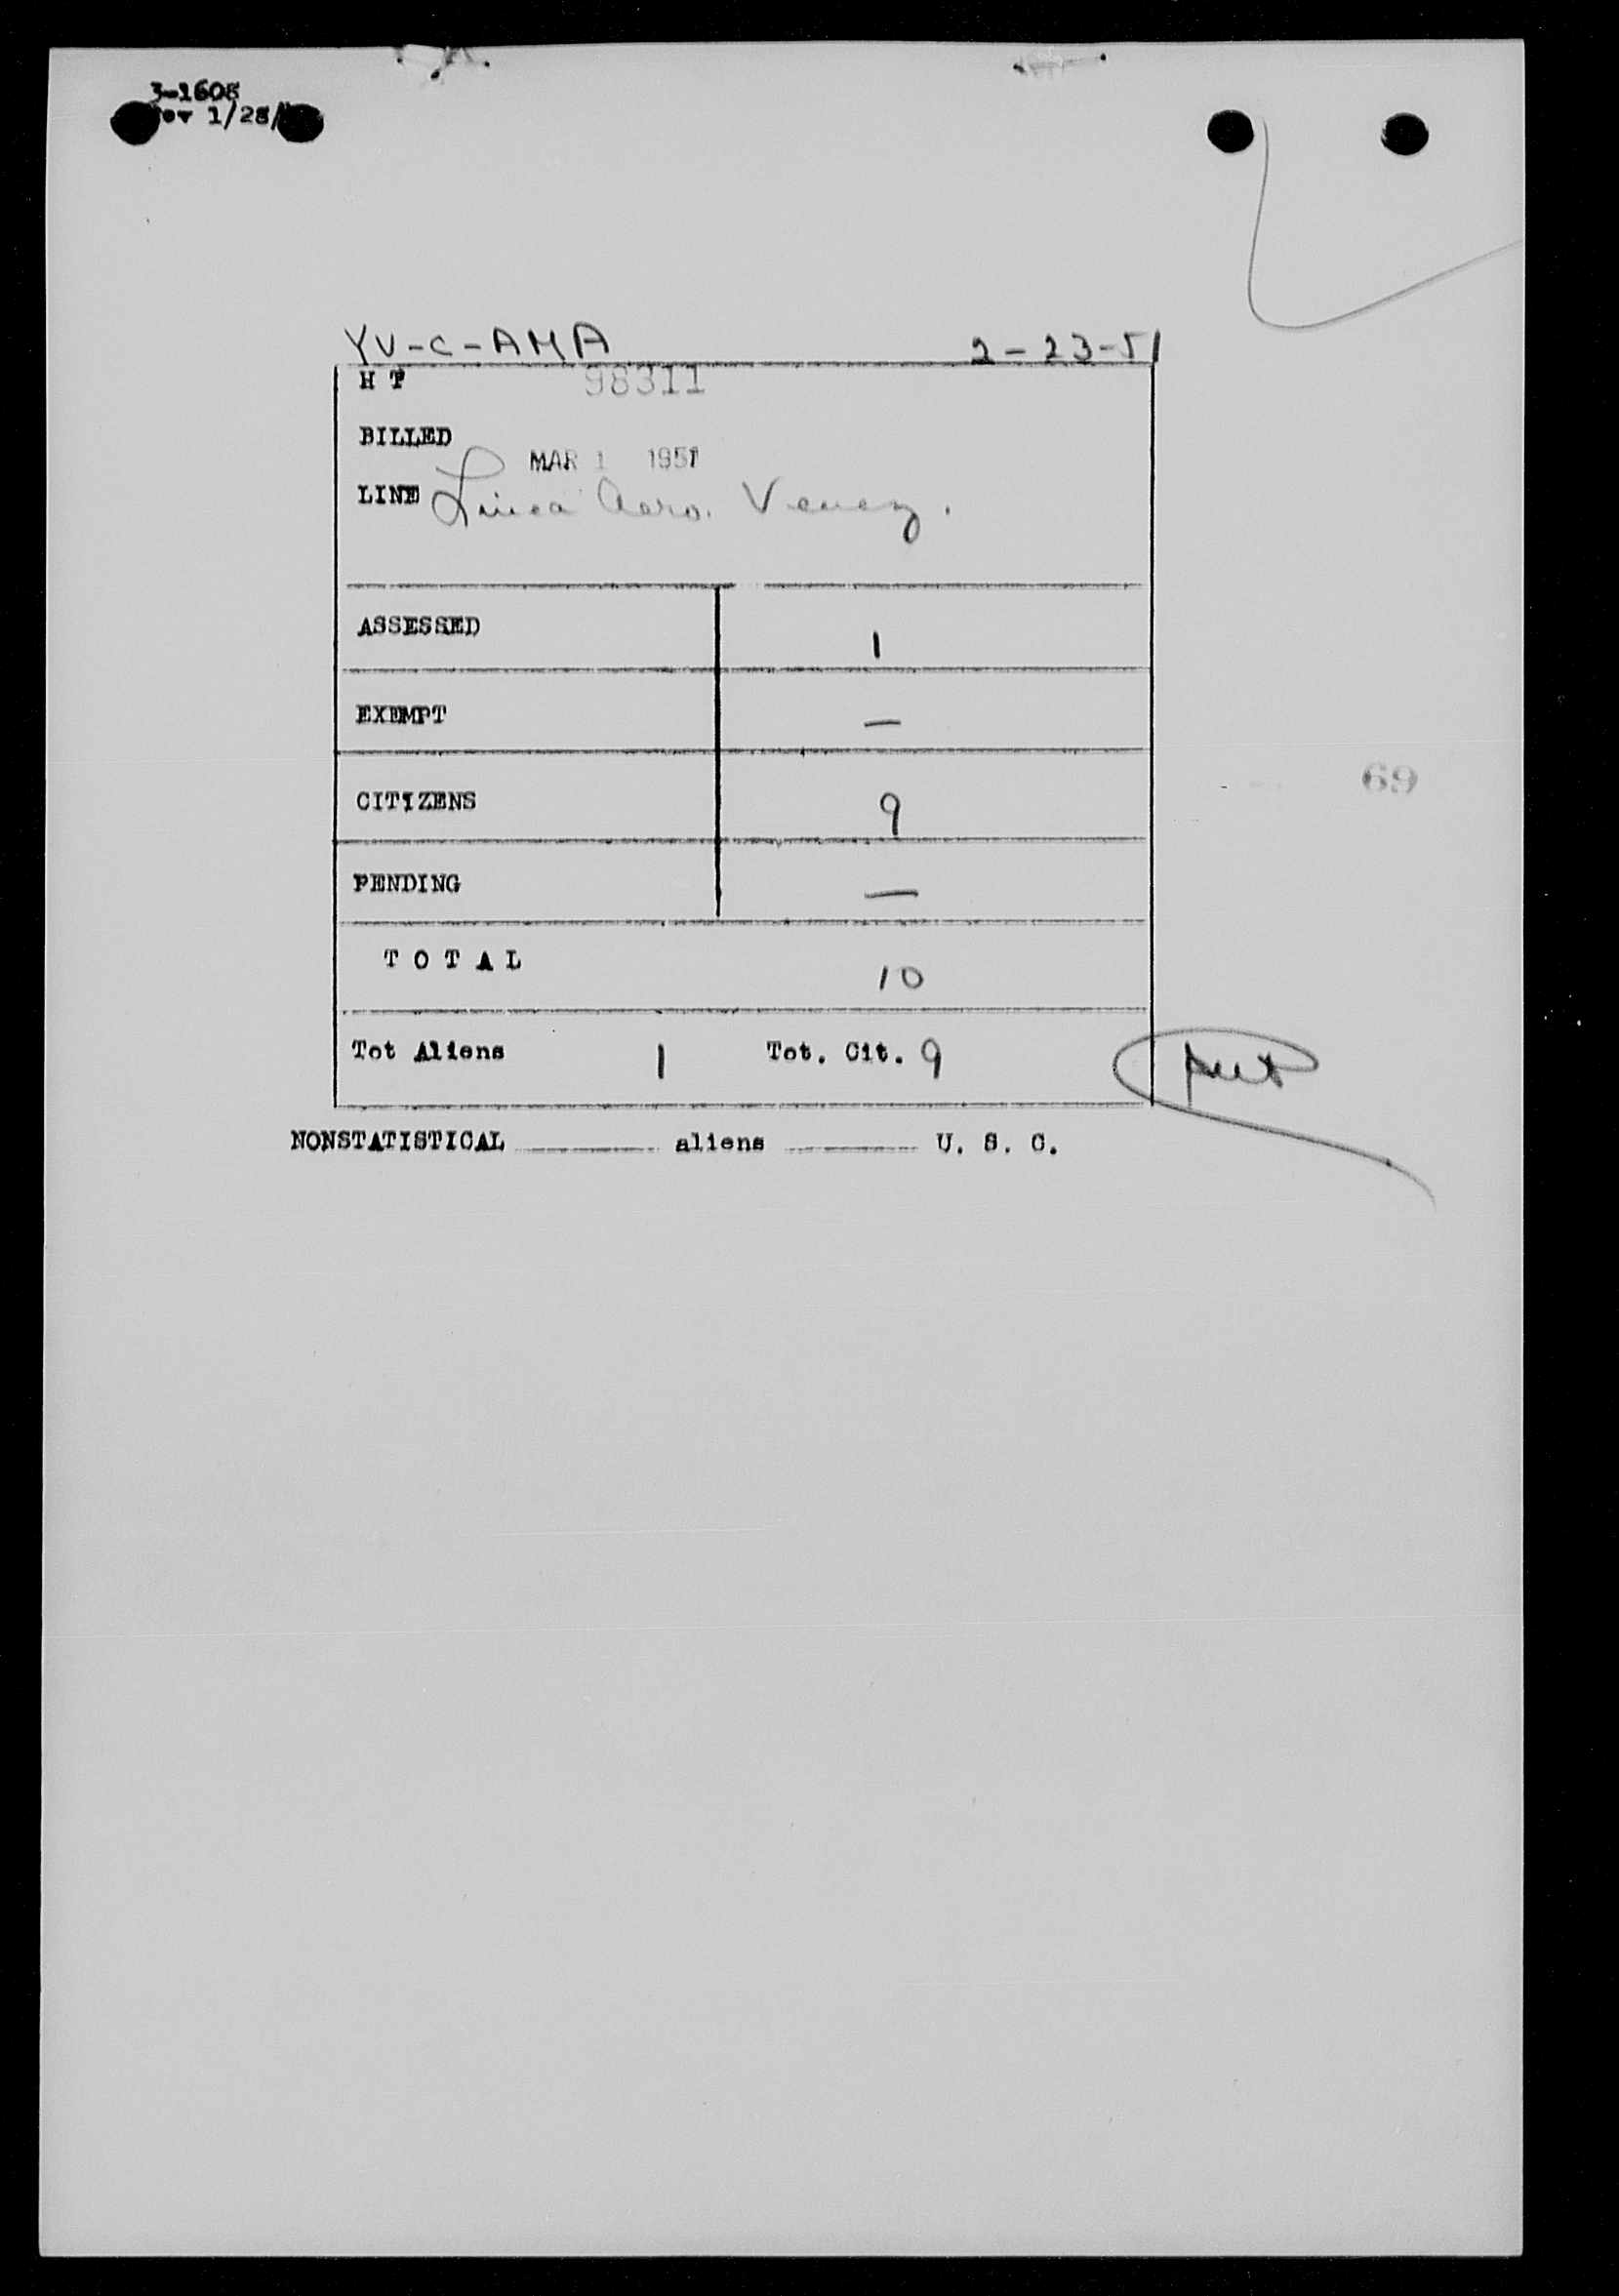 3-1608
1/28/
YV-C-AMA 2-23-51
H T 98311
BILLED
MAR 1 1951
LINE Linea Aero. Venez.
ASSESSED 1
EXEMPT —
CITIZENS 9
69
PENDING —
T O T A L 10
Tot Aliens 1 Tot. Cit. 9
NONSTATISTICAL aliens U. S. C.